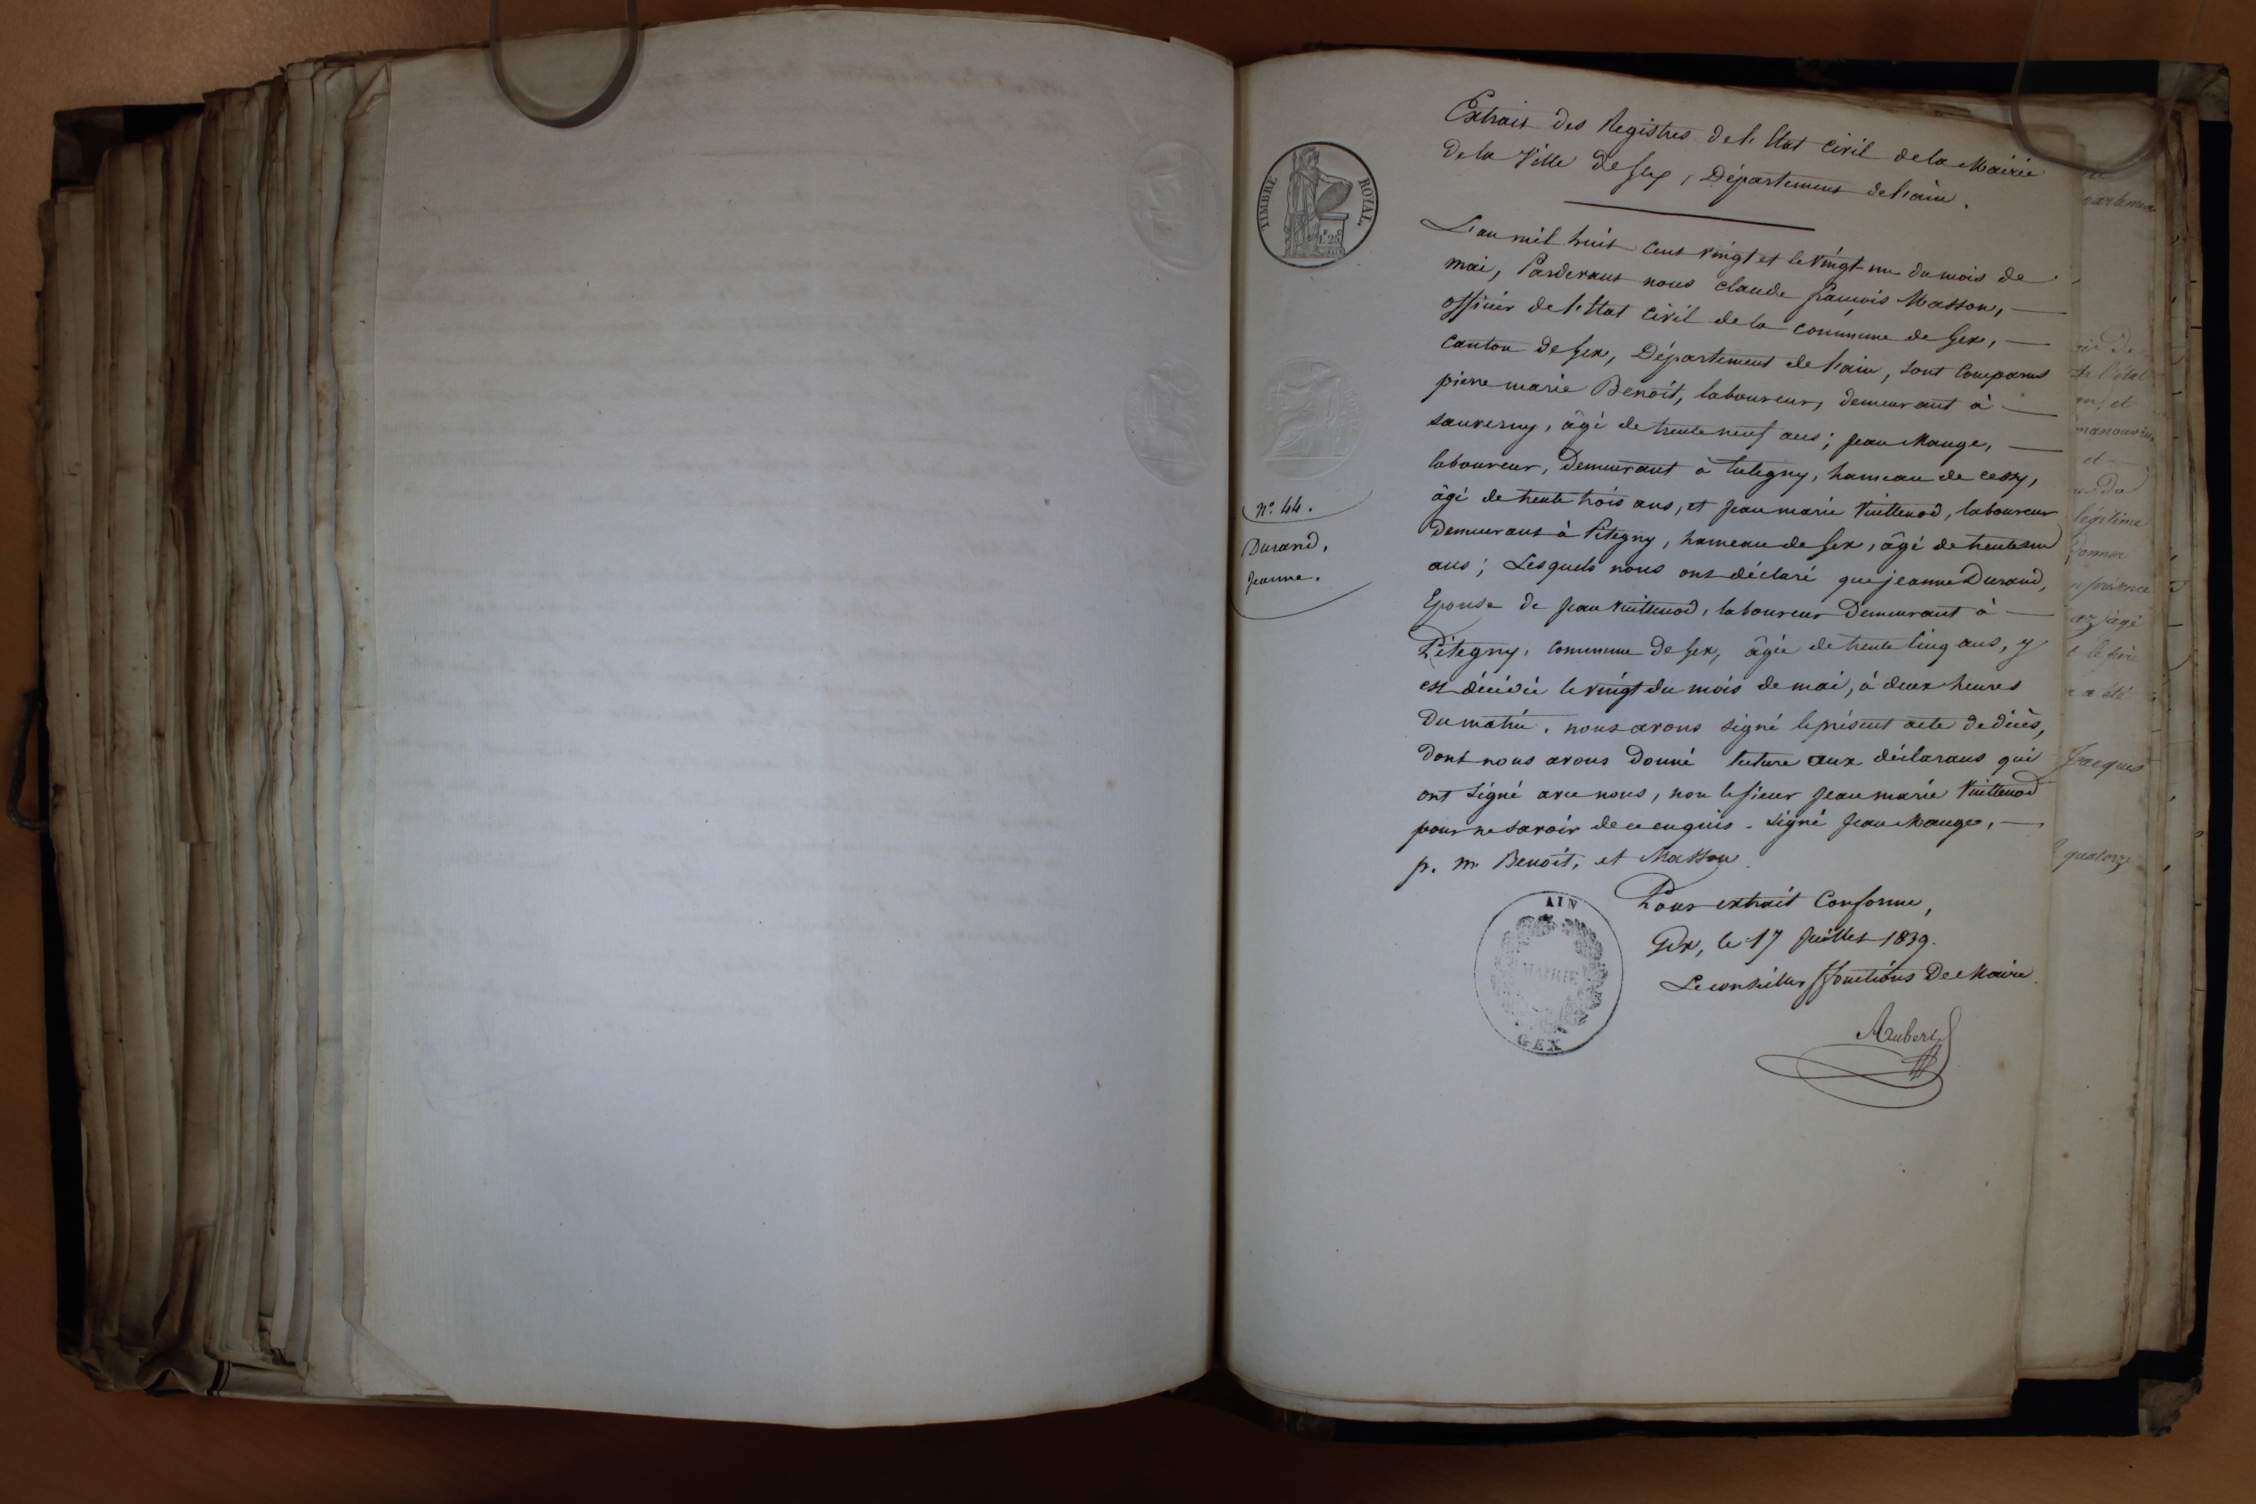 Extrait des Registres de l'Etat Civil de la Mairie
de la Ville de Gex, Département de l'ain.
TIMBRE ROYAL
L'an mil huit cent vingt et le vingt-un du mois de
mai, Pardevant nous claude françois Masson, —
officier de l'Etat Civil de la commune de Gex, —
canton de Gex, Département de l'ain, sont comparus
pierre marie Benoit, laboureur, demeurant à —
sauverny, âgé de trente neuf ans; Jean Mange, —
laboureur, Demeurant à tutegny, hameau de cessy,
âgé de trente trois ans, et Jean marie Vuillenod, laboureur
Demeurant à Pitegny, hameau de Gex, âgé de trente un
ans; Lesquels nous ont déclaré que jeanne Durand,
Epouse de Jean Vuillenod, laboureur Demeurant à —
Pitegny, commune de Gex, âgée de trente cinq ans, y
est décédée le vingt du mois de mai, à deux heures
du matin. nous avons signé le présent acte de décès,
dont nous avons donné lecture aux déclarans qui
ont signé avec nous, non le sieur Jean marie Vuillenod
pour ne savoir de ce enquis. Signé Jean Mange, —
p. m. Benoit, et Masson.
Nº 44.
Durand,
Jeanne.
Pour extrait Conforme,
Gex, le 17 Juillet 1839.
Le conseiller ff fonctions De Maire.
Aubert
AIN
MAIRIE
GEX
de l'état
et
manouvrier
et
légitime
donner
présence
âgé
a été
Jacques
quatorze